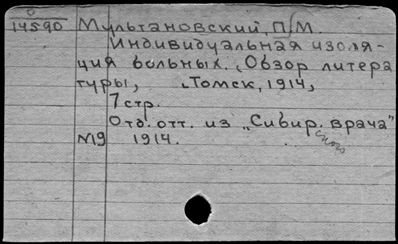 0
14590 Мультановский, П.М.
Индивидуальная изоля-
ция больных. Обзор литера
туры, Томск, 1914,
7 стр.
Отд. отт. из „Сибир. врача"
ского
№9 1914.